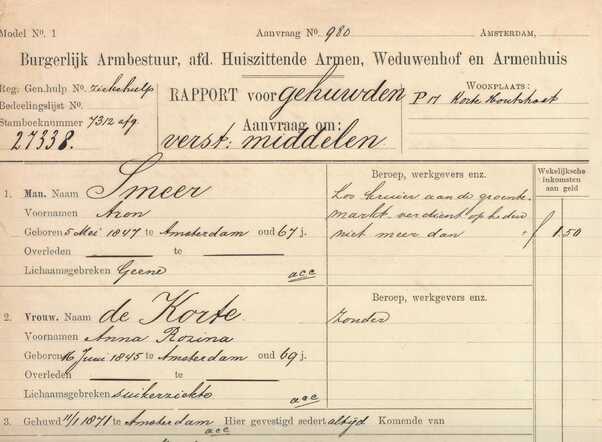 Model No. 1 Aanvraag No. 980 AMSTERDAM,
Burgerlijk Armbestuur, afd. Huiszittende Armen, Weduwenhof en Armenhuis
Reg. Gen.hulp No. ziekehulp
Bedeelingslijst No.
Stamboeknummer 7312 afg
27338.
RAPPORT voor gehuwden
Aanvraag om:
verst: middelen
WOONPLAATS:
P 17 Korte Houtstraat
Beroep, werkgevers enz.
Wekelijksche inkomsten aan geld
1. Man. Naam Smeer
Voornamen Aron
Geboren 5 Mei 1847 te Amsterdam oud 67 j.
Overleden te
Lichaamsgebreken Geene acc
Los kruier aan de groente
markt verdient op heden
niet meer dan " f 1.50
2. Vrouw. Naam de Korte
Voornamen Anna Rozina
Geboren 16 Juni 1845 te Amsterdam oud 69 j.
Overleden te
Lichaamsgebreken suikerziekte acc
Beroep, werkgevers enz.
Zonder
3. Gehuwd 11/1 1871 te Amsterdam Hier gevestigd sedert altijd Komende van
acc